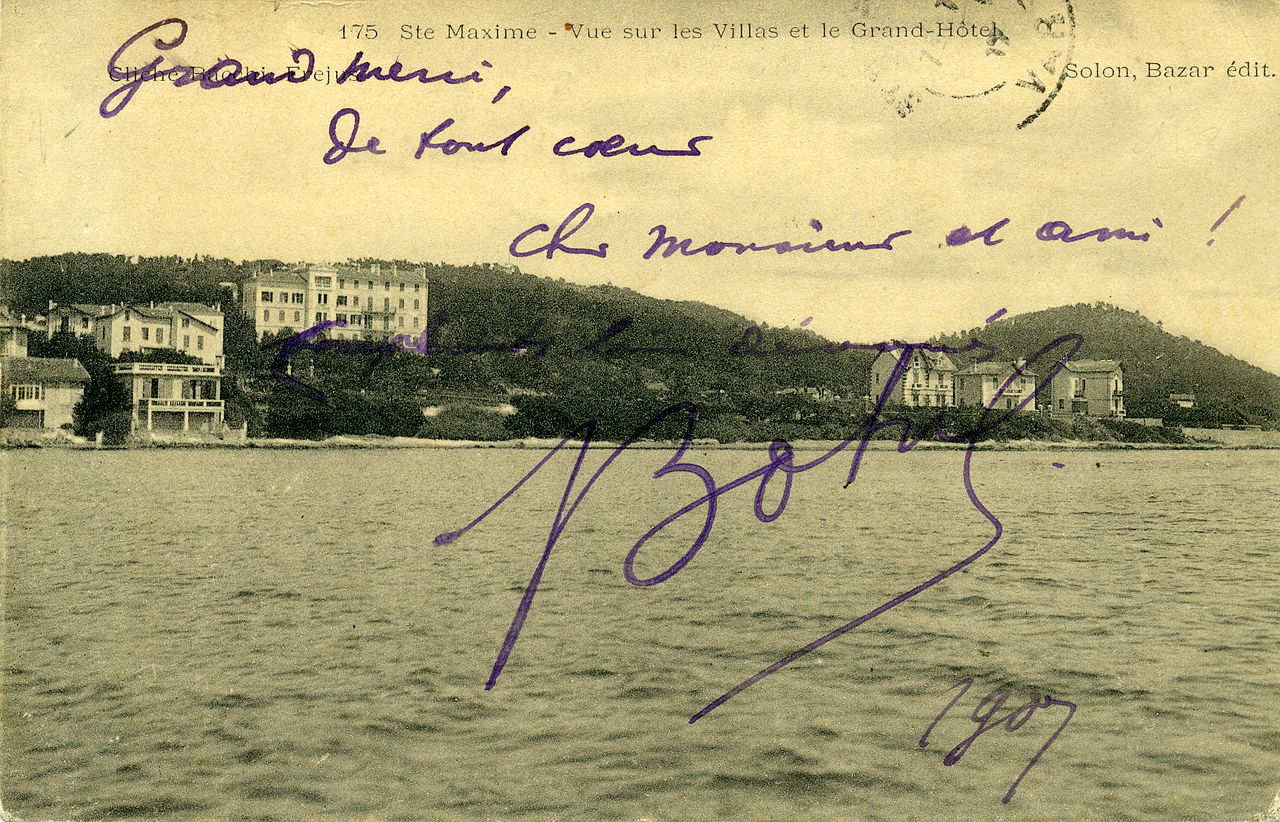 175 Ste Maxime - Vue sur les Villas et le Grand-Hôtel
Cliché Fréjus
Solon, Bazar édit.
VAR
Grand merci,
De tout cœur
cher Monsieur et ami !
bien dévoués
1907